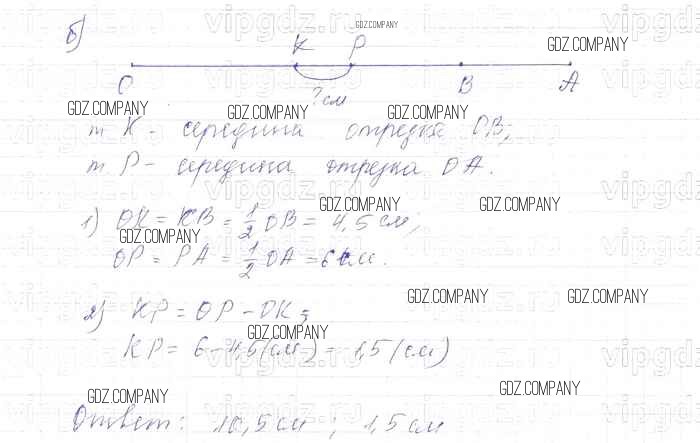 б)
K P
O B A
? см
т K - середина отрезка OB;
т P - середина отрезка OA.
1) OK = KB = 1/2 OB = 4,5 см,
OP = PA = 1/2 OA = 6 см.
2) KP = OP - OK;
KP = 6 - 4,5 (см) = 1,5 (см)
Ответ: 10,5 см ; 1,5 см
GDZ.COMPANY
GDZ.COMPANY
GDZ.COMPANY
GDZ.COMPANY
GDZ.COMPANY
GDZ.COMPANY
GDZ.COMPANY
GDZ.COMPANY
GDZ.COMPANY
GDZ.COMPANY
GDZ.COMPANY
GDZ.COMPANY
GDZ.COMPANY
vipgdz.ru